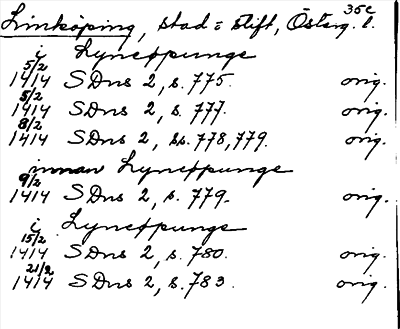 35c
Linköping, stad o stift, Österg. l.
i Lyncøpunge
5/2 1414 SDns 2, s. 775. orig.
5/2 1414 SDns 2, s. 777. orig.
8/2 1414 SDns 2, ss. 778, 779. orig.
innan Lyncøpunge
9/2 1414 SDns 2, s. 779. orig.
i Lyncøpunge
15/2 1414 SDns 2, s. 780. orig.
21/2 1414 SDns 2, s. 783. orig.